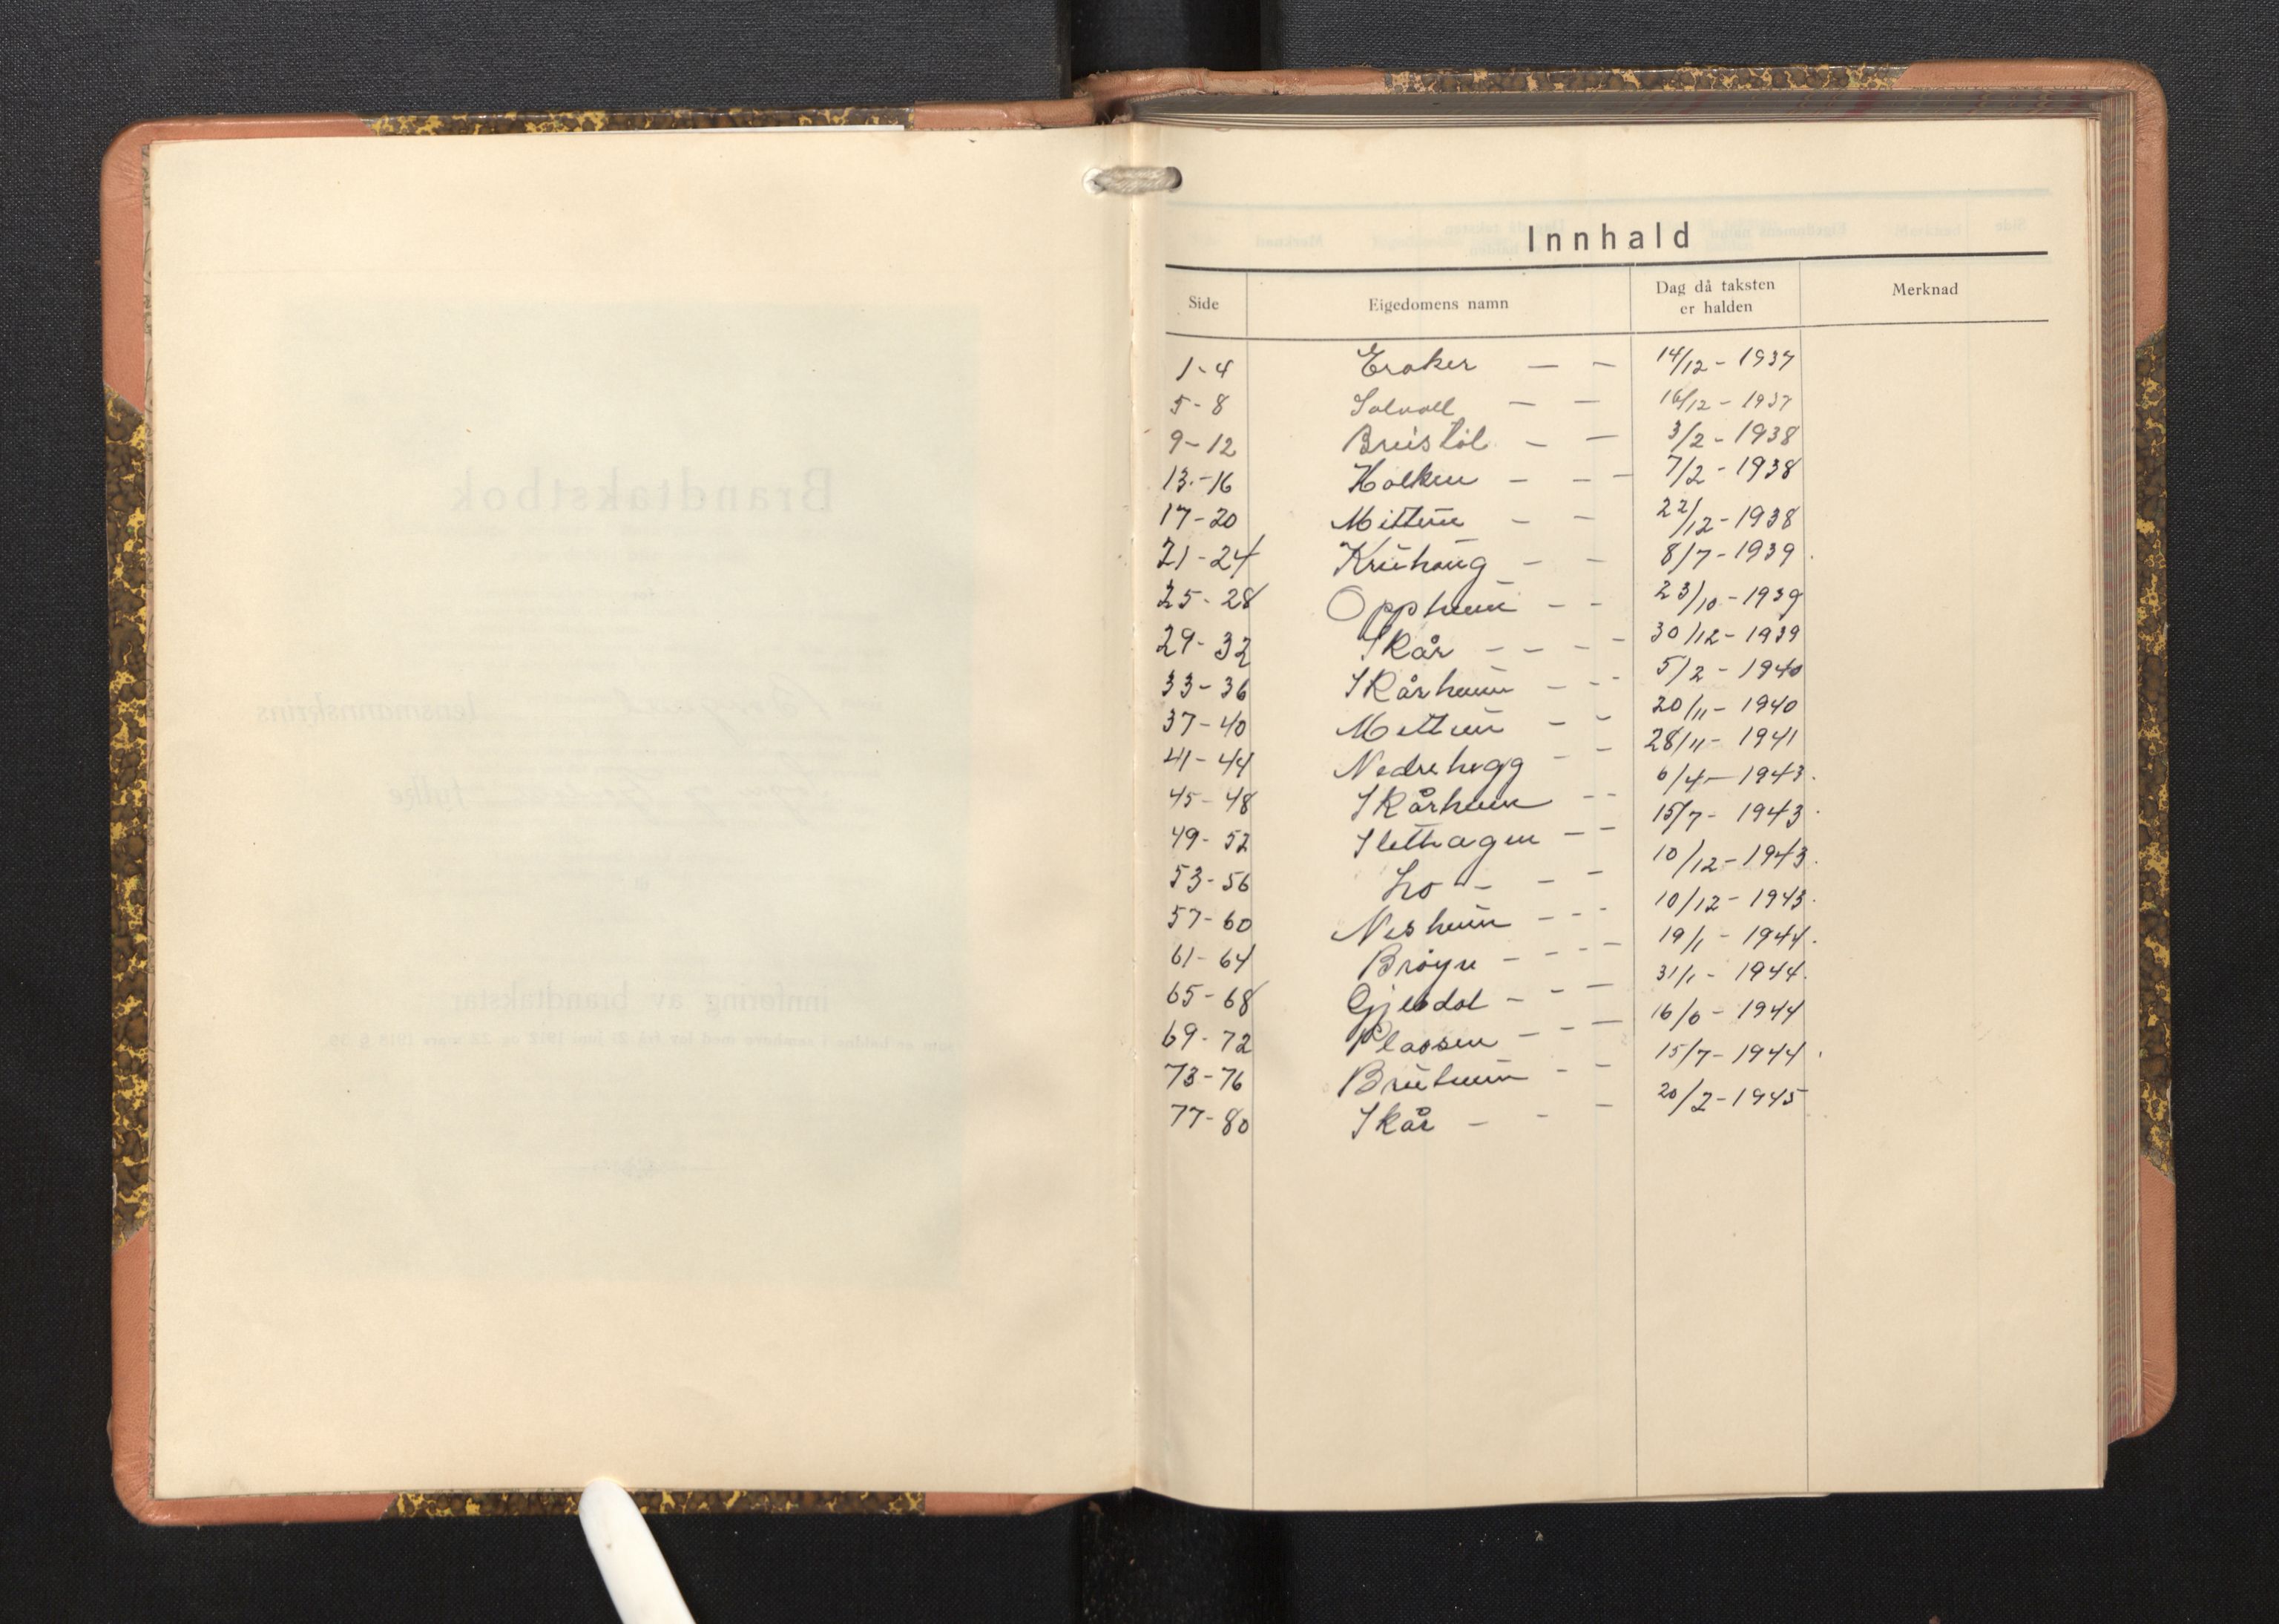 Innhald
Side Eigedomens namn Dag då taksten er halden Merknad
1-4 Eraker — — 14/12 - 1937
5-8 Solvoll — — 16/12 - 1937
9-12 — — 3/2 - 1938
13-16 Holken — — — 7/2 - 1938
17-20 — — 22/12 - 1938
21-24 Kruhaug — — 8/7 - 1939.
25-28 Oppheim — — 23/10 - 1939
29-32 Skår — — — — 30/12 - 1939
33-36 Skårheim — — — 5/2 - 1940
37-40 — — 20/11 - 1940
41-44 Nedrehegg — — 28/11 - 1941
45-48 Skårheim — — 6/4 - 1943.
49-52 Sletthagen — — 15/7 - 1943.
53-56 Lo — — — 10/12 - 1943.
57-60 Nesheim — — — 10/12 - 1943.
61-64 Brøyn — — — — 19/1 - 1944.
65-68 Gjesdal — — — 31/1 - 1944.
69-72 Plassen — — — 16/6 - 1944
73-76 — — 15/7 - 1944.
77-80 Skår — — — 20/2 - 1945